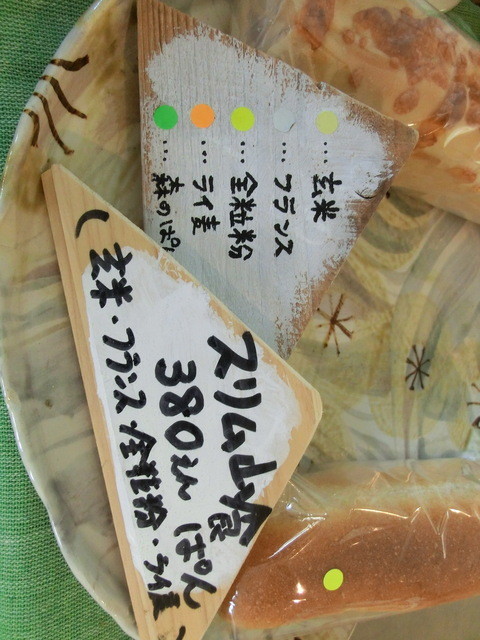 … 玄米
… フランス
… 全粒粉
… ライ麦
… 森のぱ
スリム山食
380えん ぱん
(玄米・フランス・全粒粉・ライ麦)